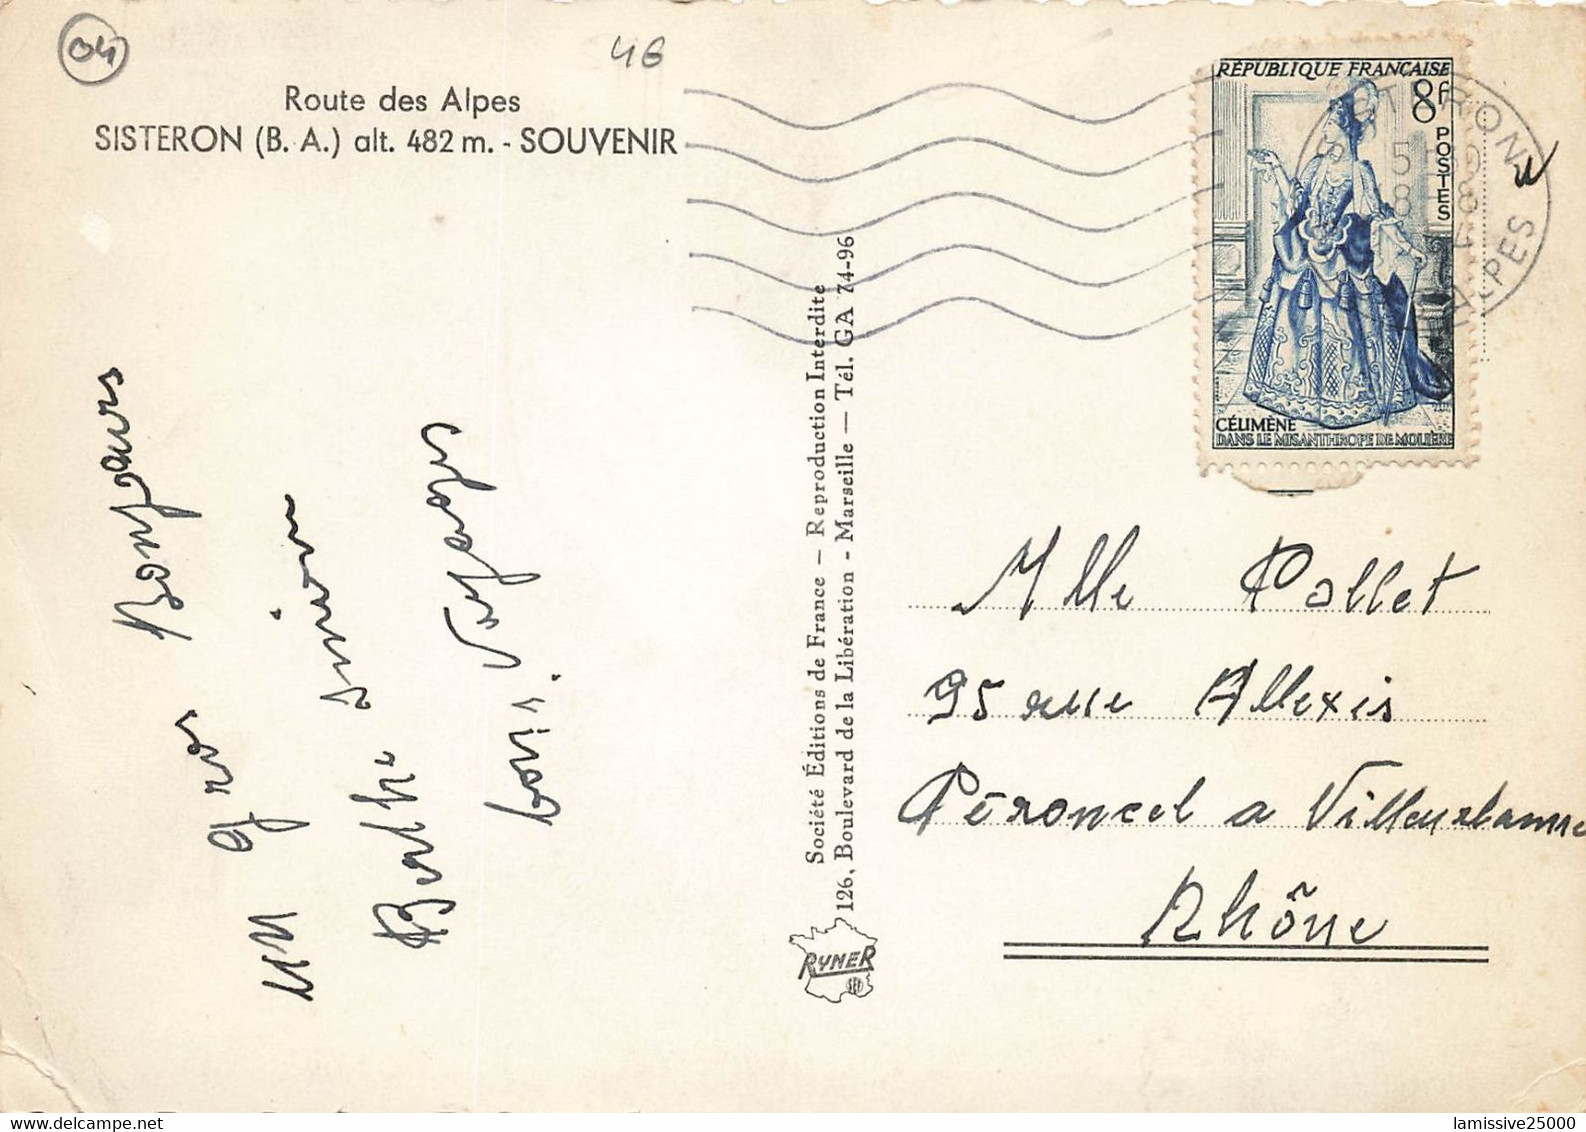 04
46
Route des Alpes
SISTERON (B. A.) alt. 482 m. - SOUVENIR
RÉPUBLIQUE FRANÇAISE
8f
POSTES
CÉLIMÈNE
DANS LE MISANTHROPE DE MOLIÈRE
SISTERON
ALPES
Un gros Bonjours
Berthe
Société Éditions de France — Reproduction Interdite
126, Boulevard de la Libération - Marseille — Tél. GA 74-96
RYNER
Mlle Pallet
95 rue Allexis
Péroncel a Villeurbanne
Rhône
lamissive25000